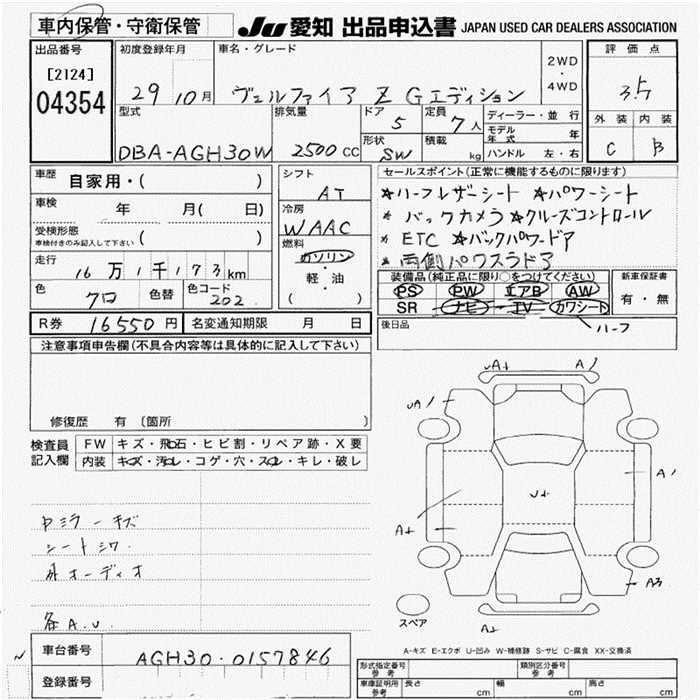 車内保管・守衛保管
JU 愛知 出品申込書 JAPAN USED CAR DEALERS ASSOCIATION
出品番号
[2124]
04354
初度登録年月
29 10月
車名・グレード
ヴェルファイア Z Gエディション
2WD
・
4WD
評価点
3.5
外装 内装
C B
型式
DBA-AGH30W
排気量
2500 CC
ドア
5
定員
7人
形状
SW
積載
kg
ディーラー・並行
モデル年式 年
ハンドル 左・右
車歴
自家用・( )
車検
年 月( 日)
受検形態
車検付きのみ記入して下さい
( )
走行
16万1千173km
色
クロ
色替
色コード
202
シフト
AT
冷房
WAAC
燃料
ガソリン
・
軽・油
( )
セールスポイント(正常に機能するものに限ります)
*ハーフレザーシート *パワーシート
* バックカメラ*クルーズコントロール
* ETC *バックパワードア
* 両側パワスラドア
装備品(純正品に限り○をつけてください)
PS PW エアB AW
SR ナビ TV カワシート
ハーフ
新車保証書
有・無
後日品
R券 16550円
名変通知期限 月 日
注意事項申告欄(不具合内容等は具体的に記入して下さい)
修復歴 有 〔箇所 〕
検査員
記入欄
FW キズ・飛石・ヒビ割・リペア跡・X要
内装 キズ・汚れ・コゲ・穴・スレ・キレ・破レ
中ミラーキズ
シートシワ
外オーディオ
各A.U
UA+
A1
UA1
A1
U+
A+
A3
A+
スペア
A-キズ E-エクボ U-凹み W-補修跡 S-サビ C-腐食 XX-交換済
車台番号
AGH30-0157846
登録番号
形式指定番号
参考
類別区分番号
参考
車庫証明用
参考
長さ cm
幅 cm
高さ cm